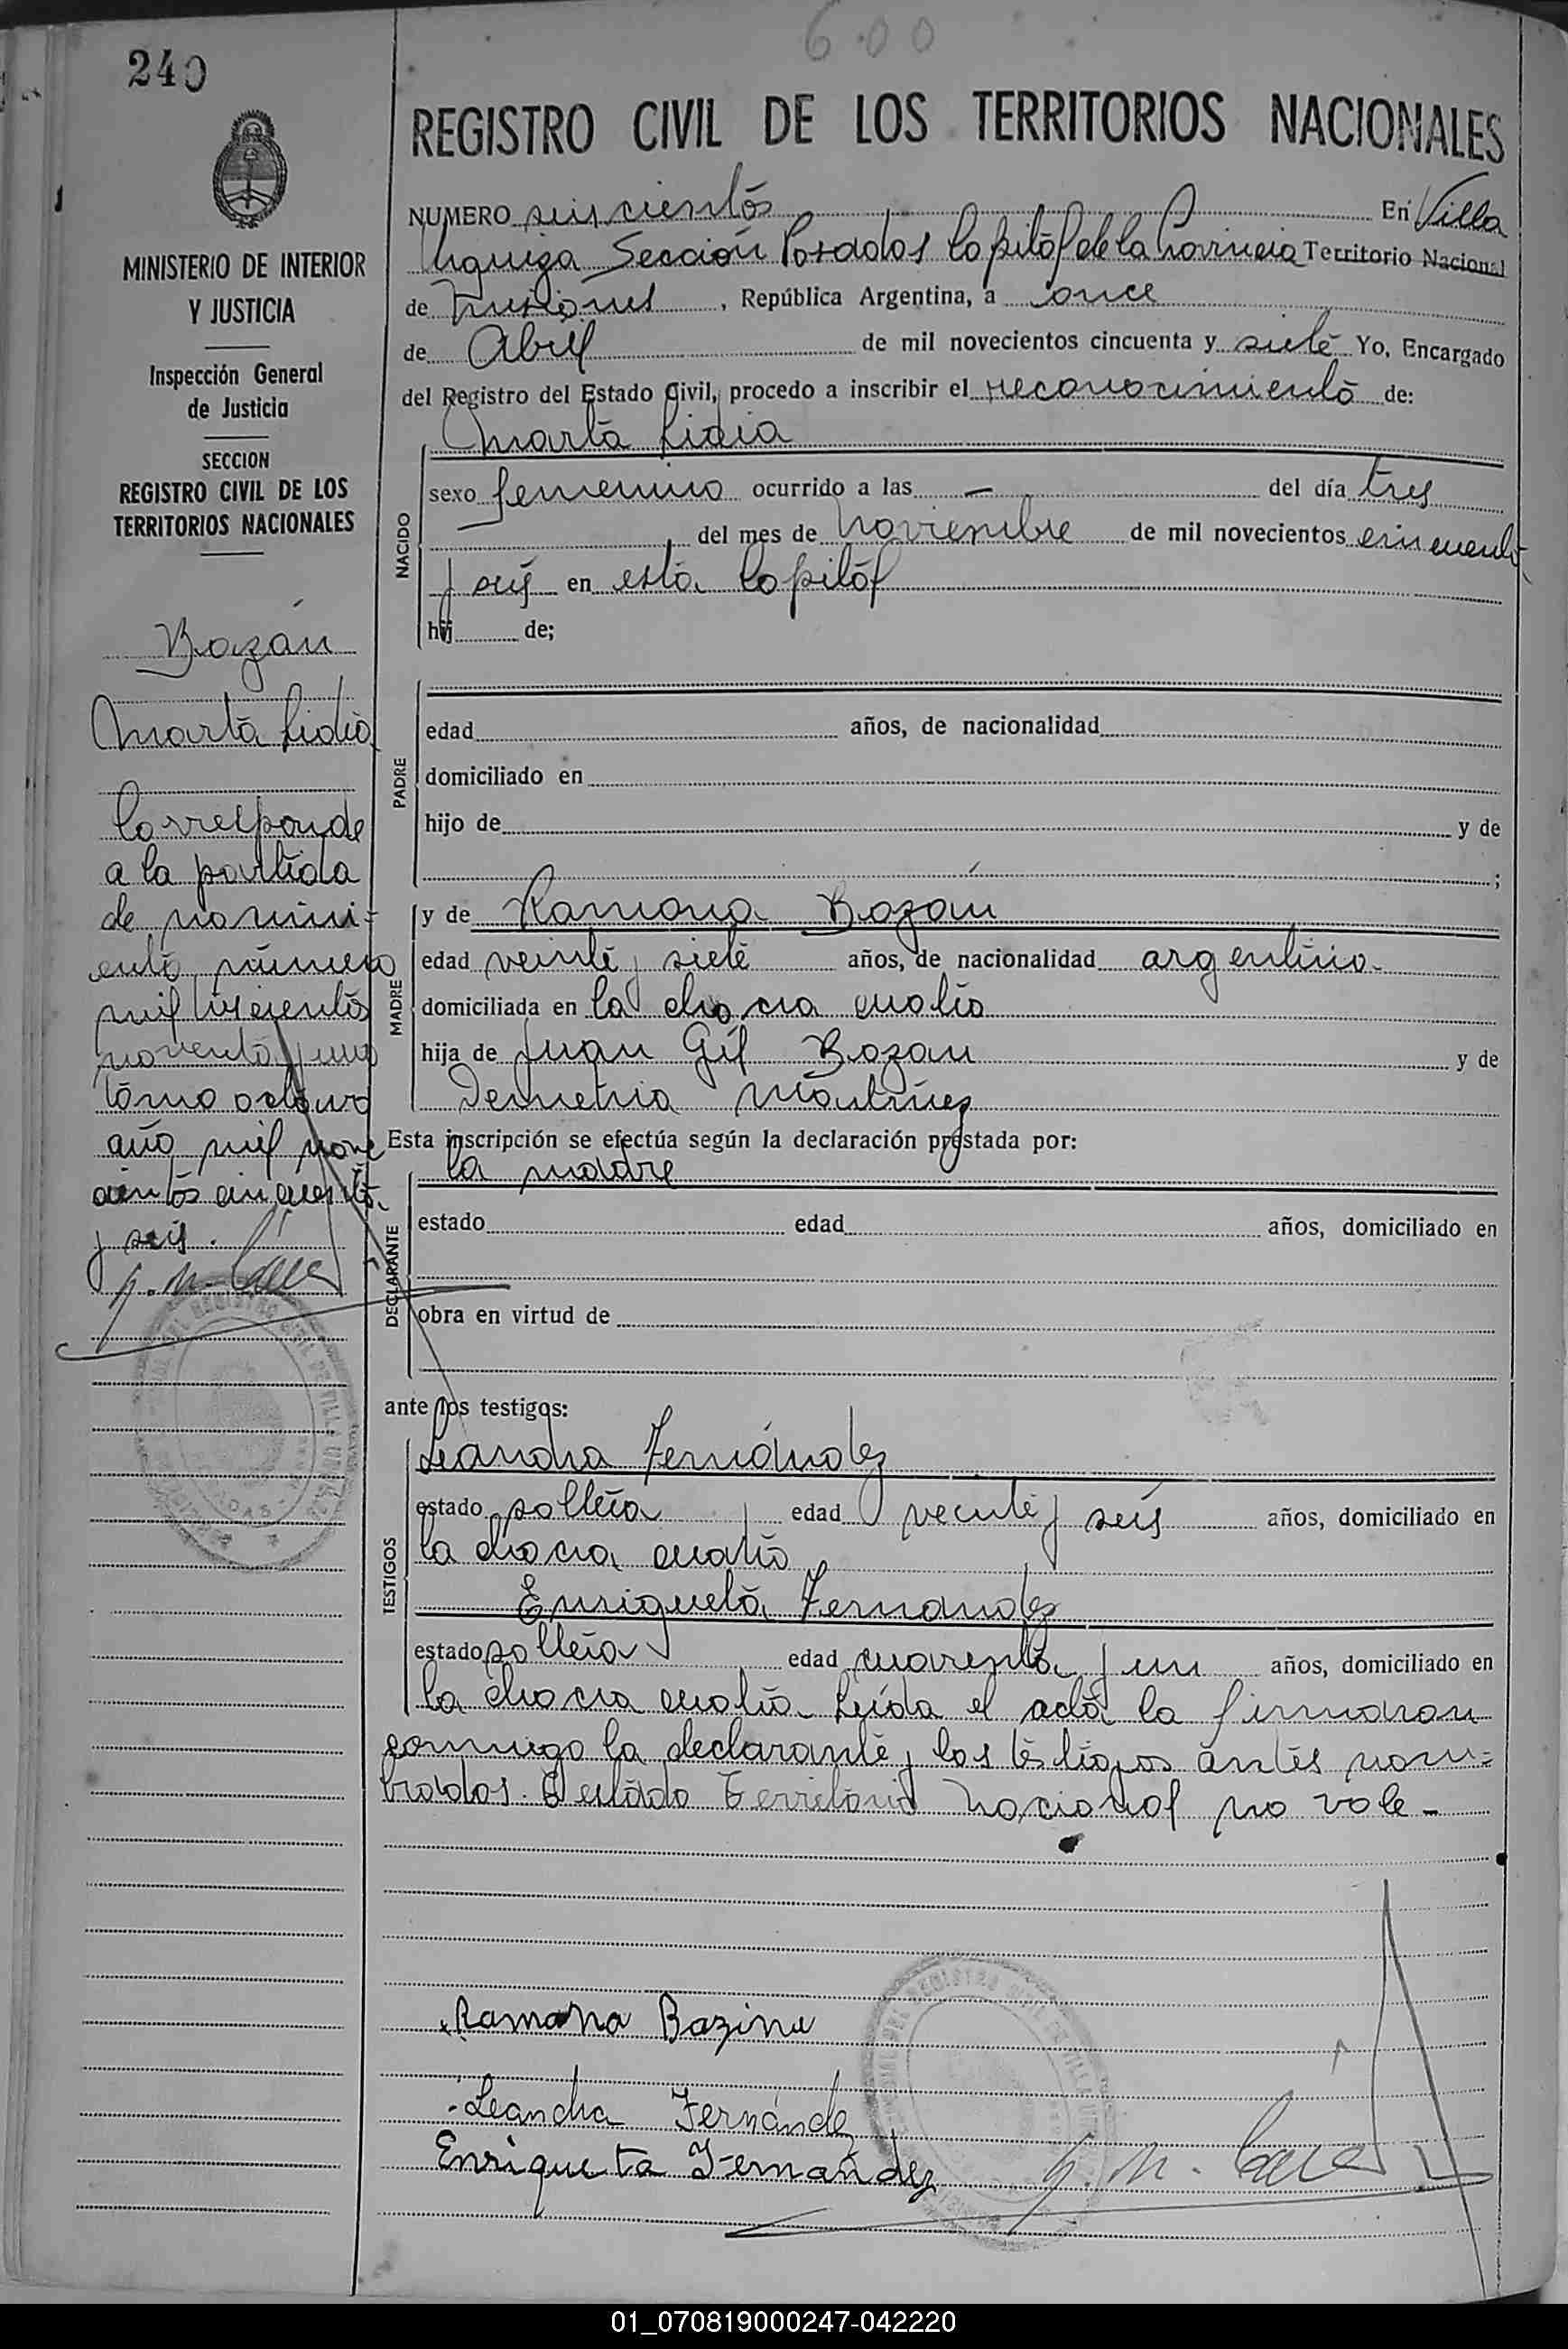 600
240
REGISTRO CIVIL DE LOS TERRITORIOS NACIONALES
MINISTERIO DE INTERIOR
Y JUSTICIA
Inspección General
de Justicia
SECCION
REGISTRO CIVIL DE LOS
TERRITORIOS NACIONALES
Bazán
Marta Lidia
Corresponde
a la partida
de nacimi=
ento número
mil
noventa y uno
tomo octavo
año mil nove
cientos cincuenta
y seis.
NUMERO seiscientos En Villa
Urquiza Sección Posadas Capital de la Provincia Territorio Nacional
de Misiones, República Argentina, a once
de Abril de mil novecientos cincuenta y siete Yo, Encargado
del Registro del Estado Civil, procedo a inscribir el reconocimiento de:
NACIDO
Marta Lidia
sexo femenino ocurrido a las — del día tres
del mes de noviembre de mil novecientos cincuenta
y seis en esta Capital
hij de;
PADRE
edad años, de nacionalidad
domiciliado en
hijo de y de
;
MADRE
y de Ramona Bazán
edad veinte y siete años, de nacionalidad argentina
domiciliada en la chacra cuatro
hija de Juan Gil Bazan y de
Demetria Martínez
Esta inscripción se efectúa según la declaración prestada por:
DECLARANTE
la madre
estado edad años, domiciliado en
obra en virtud de
ante los testigos:
TESTIGOS
Leandra Fernández
estado soltera edad veinte y seis años, domiciliado en
la chacra cuatro
Enriqueta Fernandez
estado soltera edad cuarenta y un años, domiciliado en
la chacra cuatro. Leída el acta la firmaron
conmigo la declarante y los testigos antes nom=
brados. Testado Territorio Nacional no vale.-
Ramona Bazina
Leandra Fernández
Enriqueta Fernandez
01_070819000247-042220